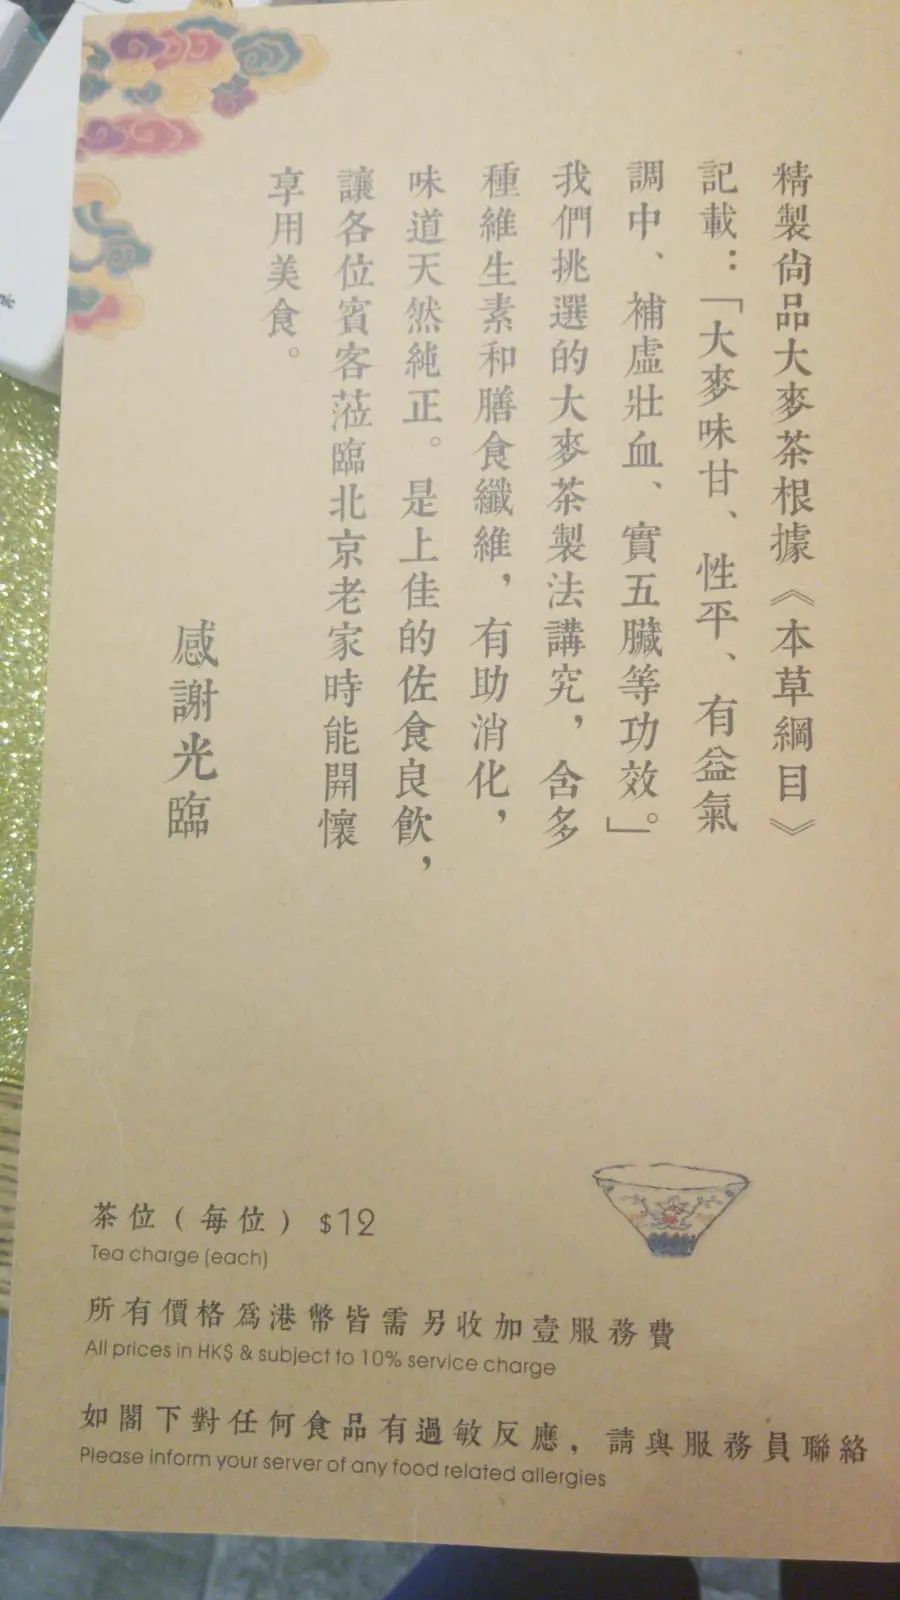 精製尚品大麥茶根據《本草綱目》
記載：「大麥味甘、性平、有益氣
調中、補虛壯血、實五臟等功效。」
我們挑選的大麥茶製法講究，含多
種維生素和膳食纖維，有助消化，
味道天然純正。是上佳的佐食良飲，
讓各位賓客蒞臨北京老家時能開懷
享用美食。
感謝光臨
茶位（每位）$12
Tea charge (each)
所有價格爲港幣皆需另收加壹服務費
All prices in HK$ & subject to 10% service charge
如閣下對任何食品有過敏反應，請與服務員聯絡
Please inform your server of any food related allergies